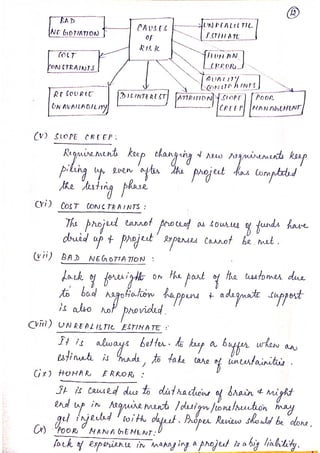 (12)
BAD NEGOTIATION
CAUSES OF RISK
UNREALISTIC ESTIMATE
COST CONSTRAINTS
HUMAN ERROR
QUALITY CONSTRAINTS
RESOURCE UNAVAILABILITY
DISINTEREST
ATTRITION
SCOPE CREEP
POOR MANAGEMENT
(v) SCOPE CREEP:
Requirements keep changing & new requirements keep
piling up even after the project has completed
the testing phase
(vi) COST CONSTRAINTS:
The project cannot proceed as sources of funds have
dried up & project expenses cannot be met.
(vii) BAD NEGOTIATION:
Lack of foresight on the part of the customer due
to bad negotiation happens & adequate support
is also not provided.
(viii) UNREALISTIC ESTIMATE:
It is always better to keep a buffer when an
estimate is made, to take care of uncertainities.
(ix) HUMAN ERROR:
It is caused due to distractions of brain & might
end up in requirements/design/construction may
get injected with defect. Proper Review should be done.
(x) POOR MANAGEMENT:
lack of experience in managing a project is a big liability.